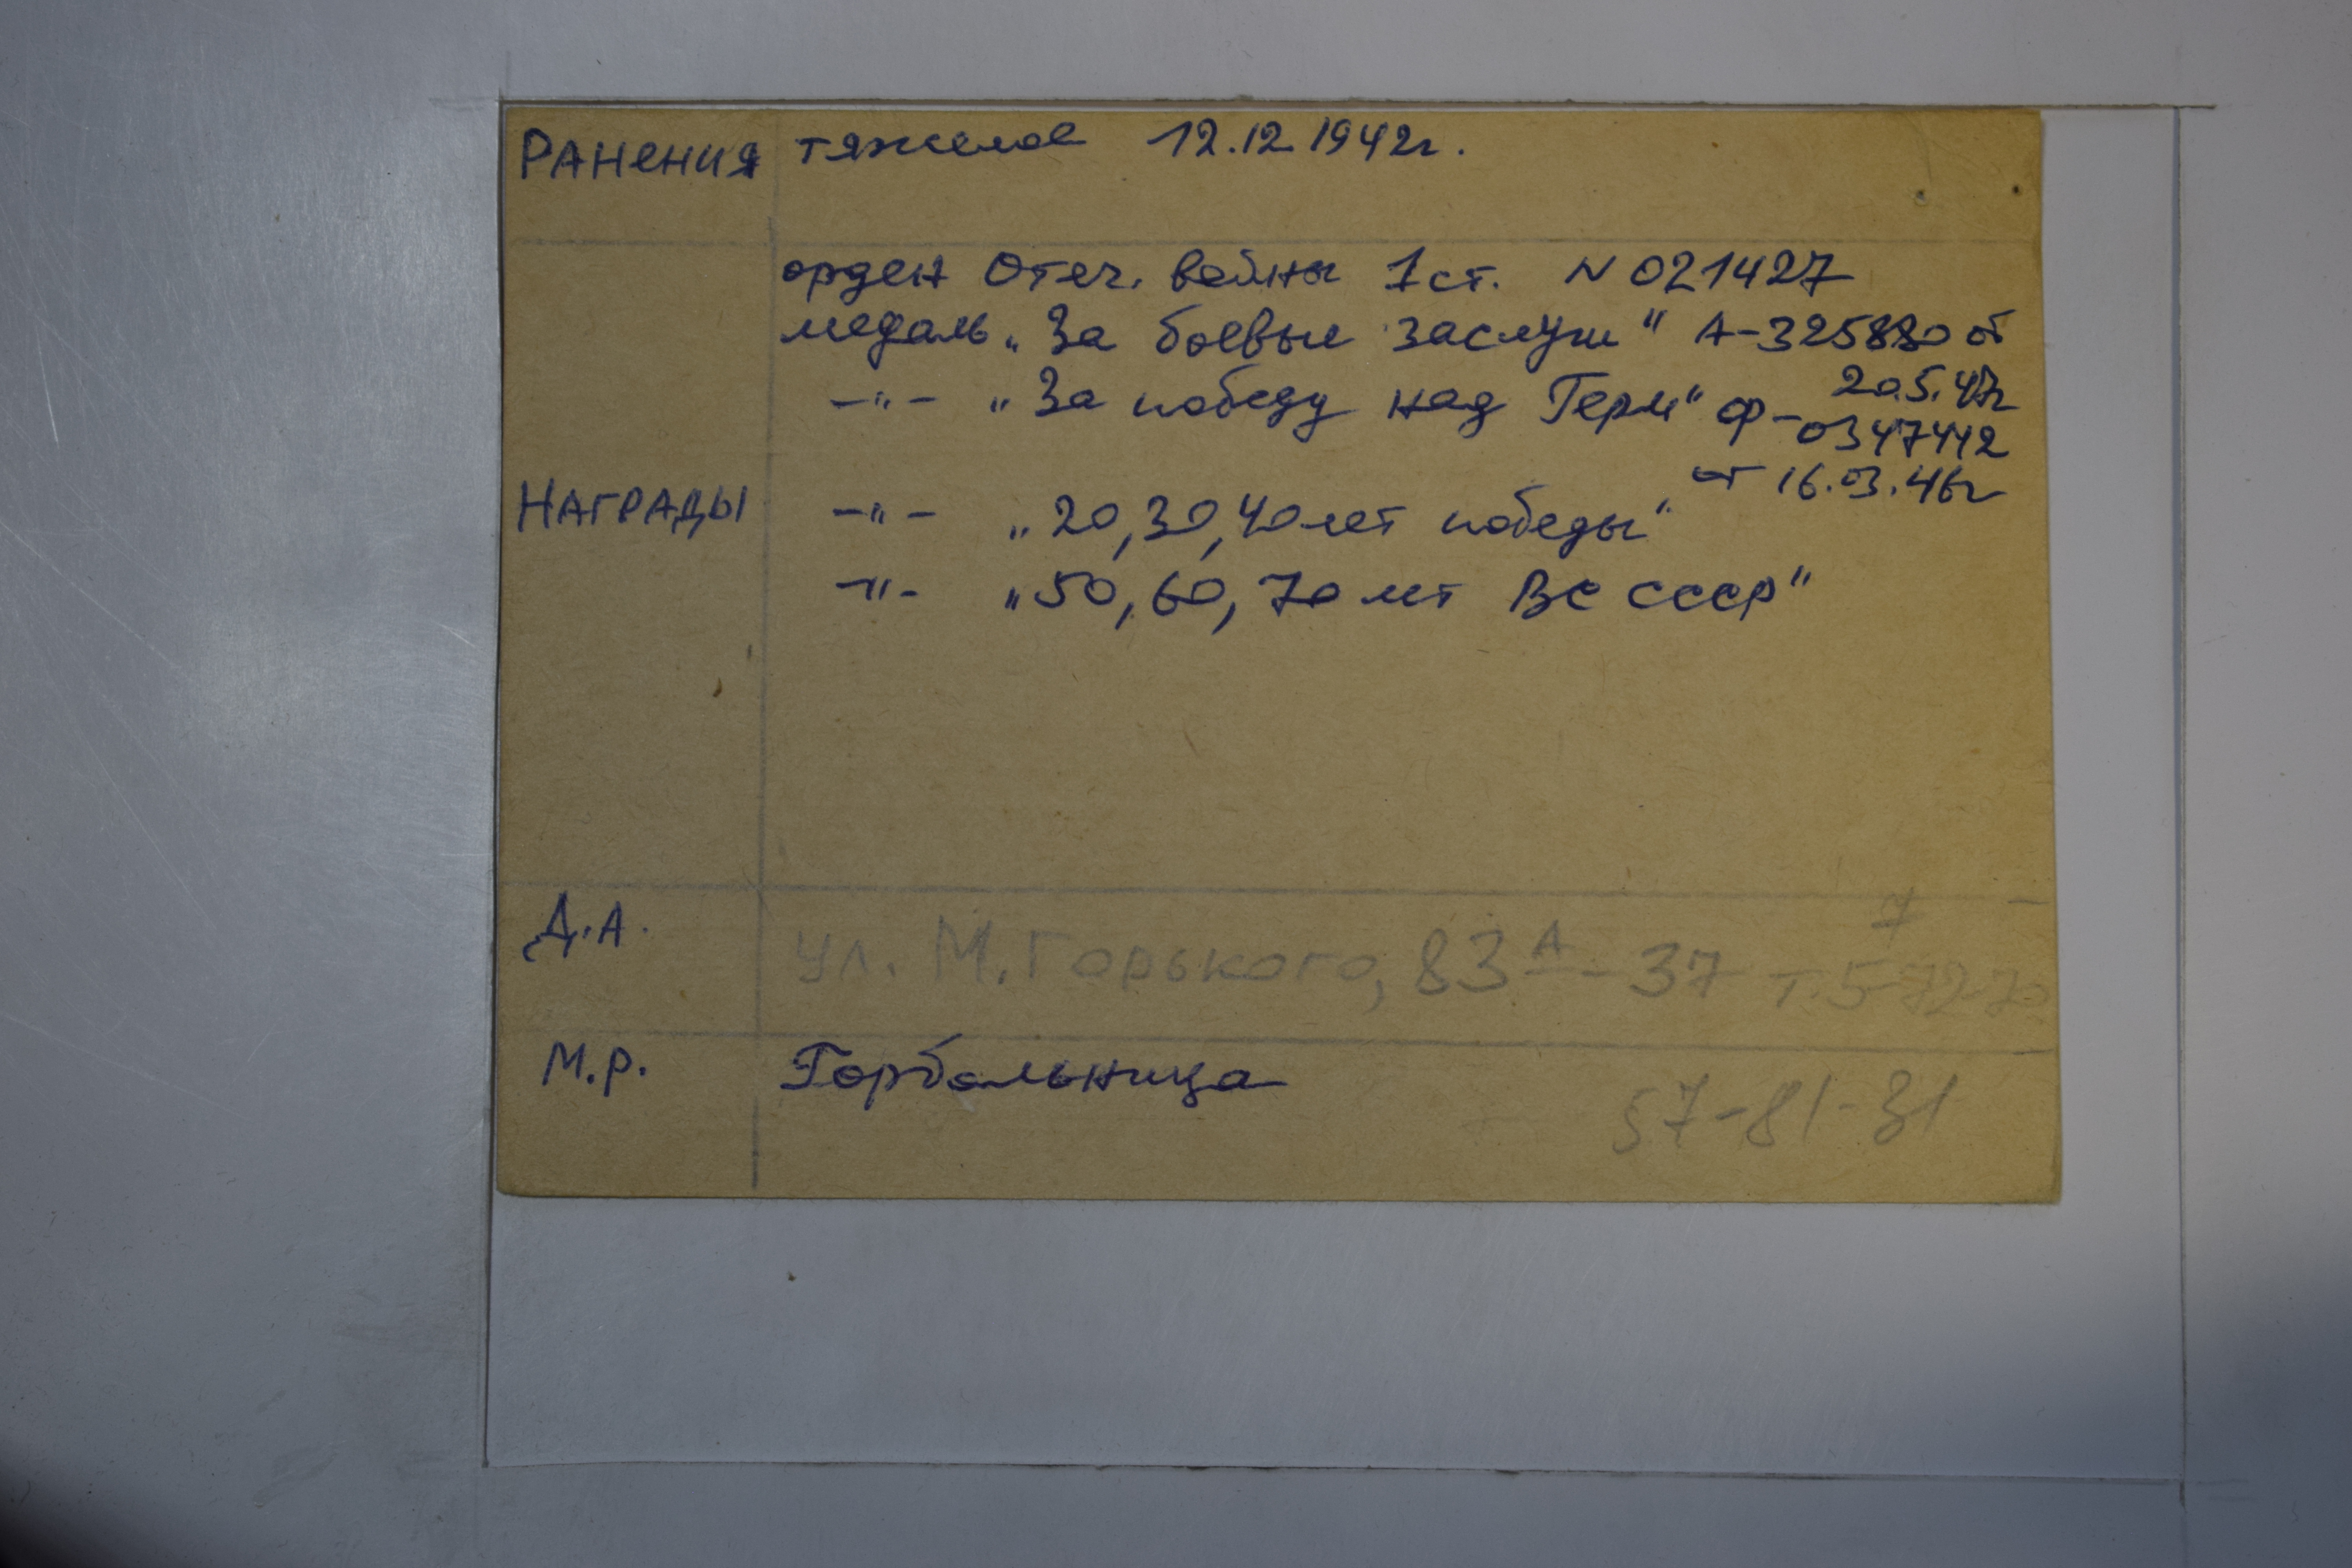 РАНЕНИЯ тяжелое 12.12.1942г.
орден Отеч. войны 1 ст. N 021427
медаль „За боевые заслуги" А-325880 от
20.5.47г
—"— „За победу над Герм" Ф-0347442
от 16.03.46г
НАГРАДЫ —"— „20, 30, 40 лет победы"
—"— „50, 60, 70 лет ВС СССР"
Д.А. ул. М.Горького, 83А - 37 т.5
М.Р. Горбольница
57-81-31